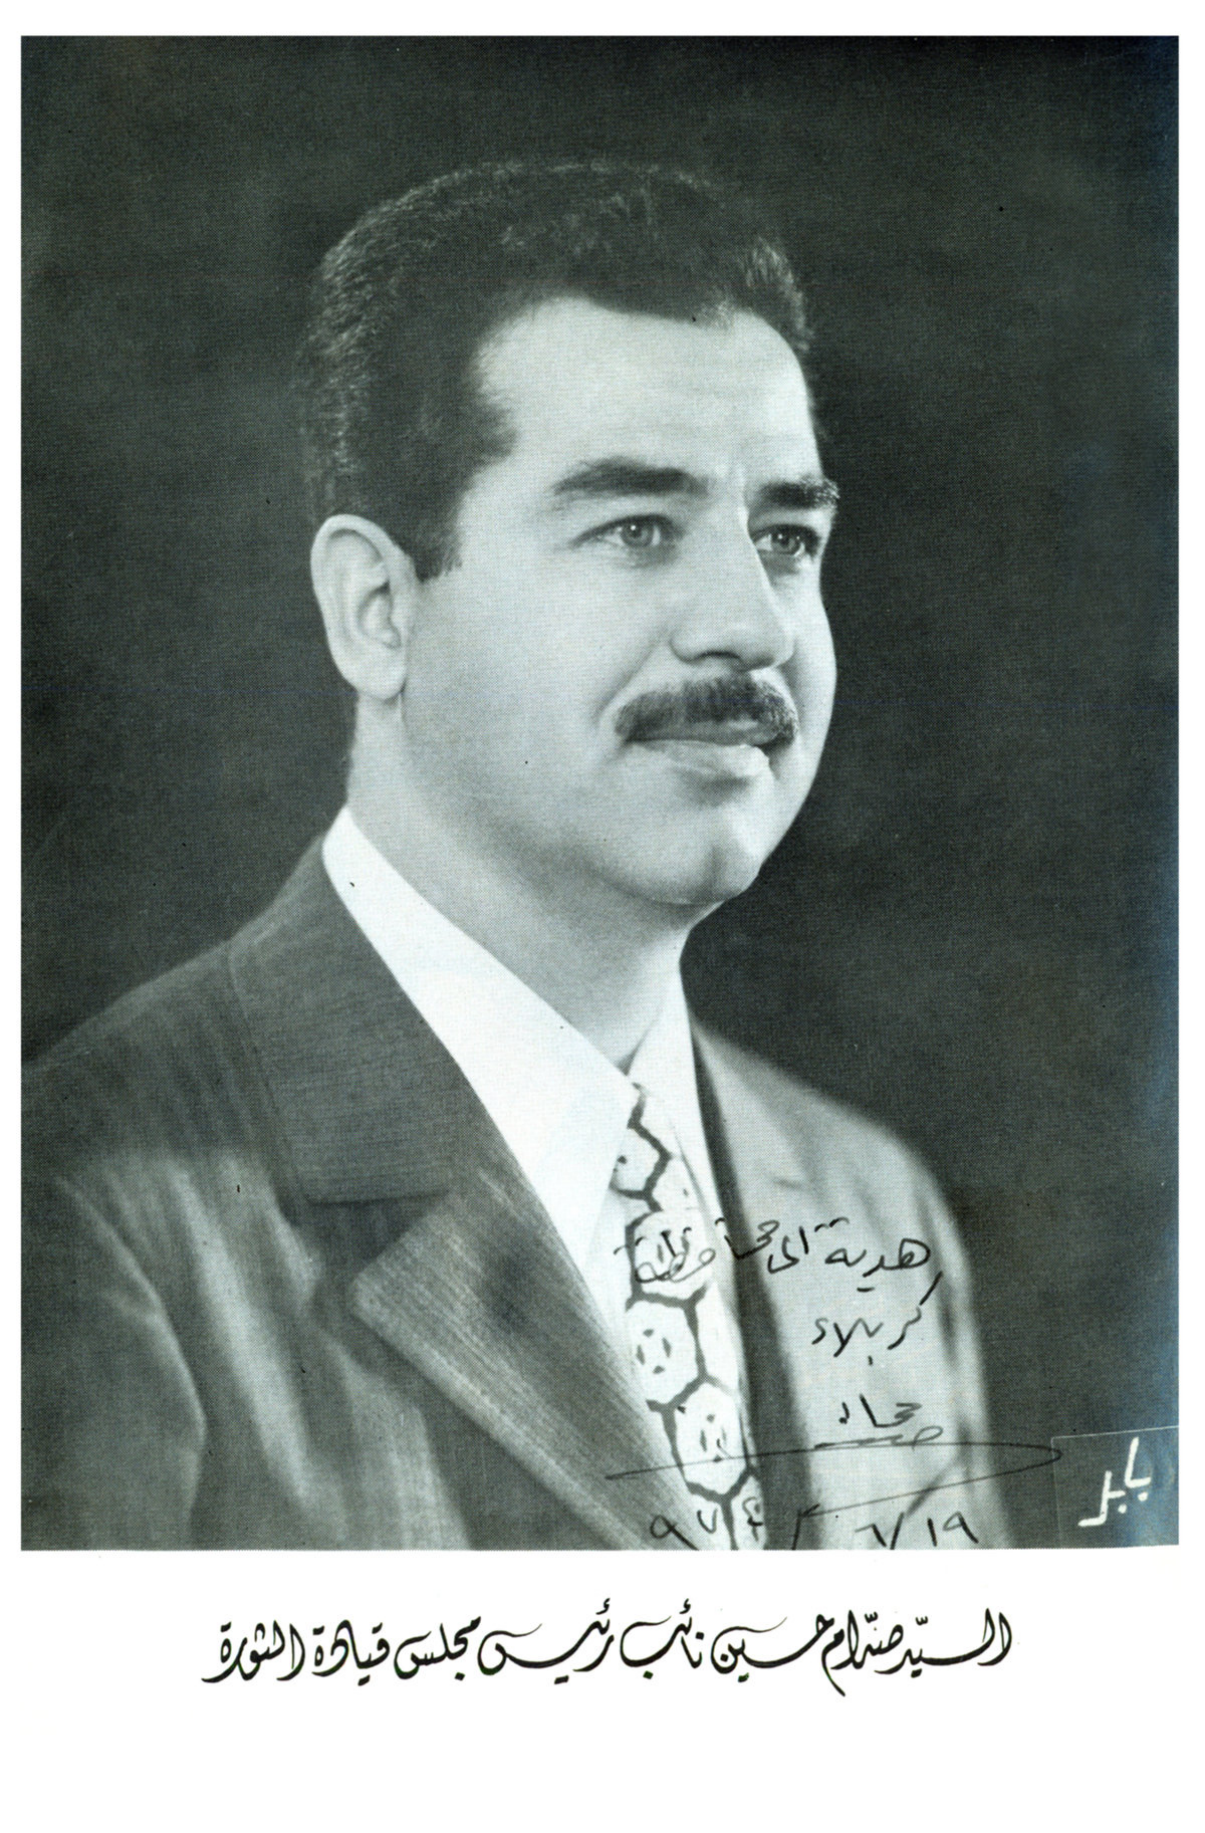 هدية الى محافظة
كربلاء
٩٧٤/٦/١٩
بابل
السيد صدام حسين نائب رئيس مجلس قيادة الثورة